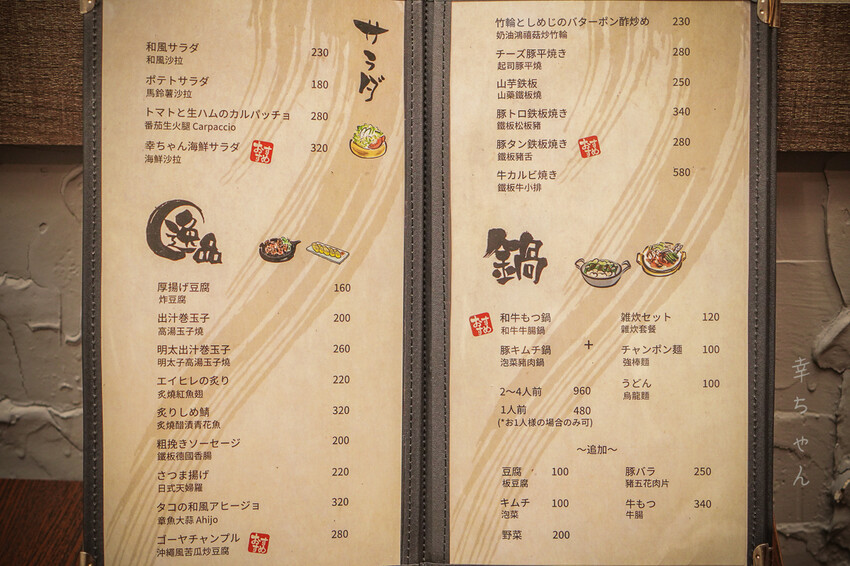 サラダ
和風サラダ 230
和風沙拉
ポテトサラダ 180
馬鈴薯沙拉
トマトと生ハムのカルパッチョ 280
番茄生火腿 Carpaccio
幸ちゃん海鮮サラダ おすすめ 320
海鮮沙拉
逸品
厚揚げ豆腐 160
炸豆腐
出汁巻玉子 200
高湯玉子燒
明太出汁巻玉子 260
明太子高湯玉子燒
エイヒレの炙り 220
炙燒紅魚翅
炙りしめ鯖 320
炙燒醋漬青花魚
粗挽きソーセージ 200
鐵板德國香腸
さつま揚げ 220
日式天婦羅
タコの和風アヒージョ 320
章魚大蒜 Ahijo
ゴーヤチャンプル おすすめ 280
沖繩風苦瓜炒豆腐
竹輪としめじのバターポン酢炒め 230
奶油鴻禧菇炒竹輪
チーズ豚平焼き 280
起司豚平燒
山芋鉄板 250
山藥鐵板燒
豚トロ鉄板焼き 340
鐵板松板豬
豚タン鉄板焼き おすすめ 280
鐵板豬舌
牛カルビ焼き 580
鐵板牛小排
鍋
おすすめ 和牛もつ鍋
和牛牛腸鍋
豚キムチ鍋
泡菜豬肉鍋
2〜4人前 960
1人前 480
(*お1人様の場合のみ可)
+
雑炊セット 120
雜炊套餐
チャンポン麺 100
強棒麵
うどん 100
烏龍麵
〜追加〜
豆腐 100
板豆腐
キムチ 100
泡菜
野菜 200
豚バラ 250
豬五花肉片
牛もつ 340
牛腸
幸ちゃん